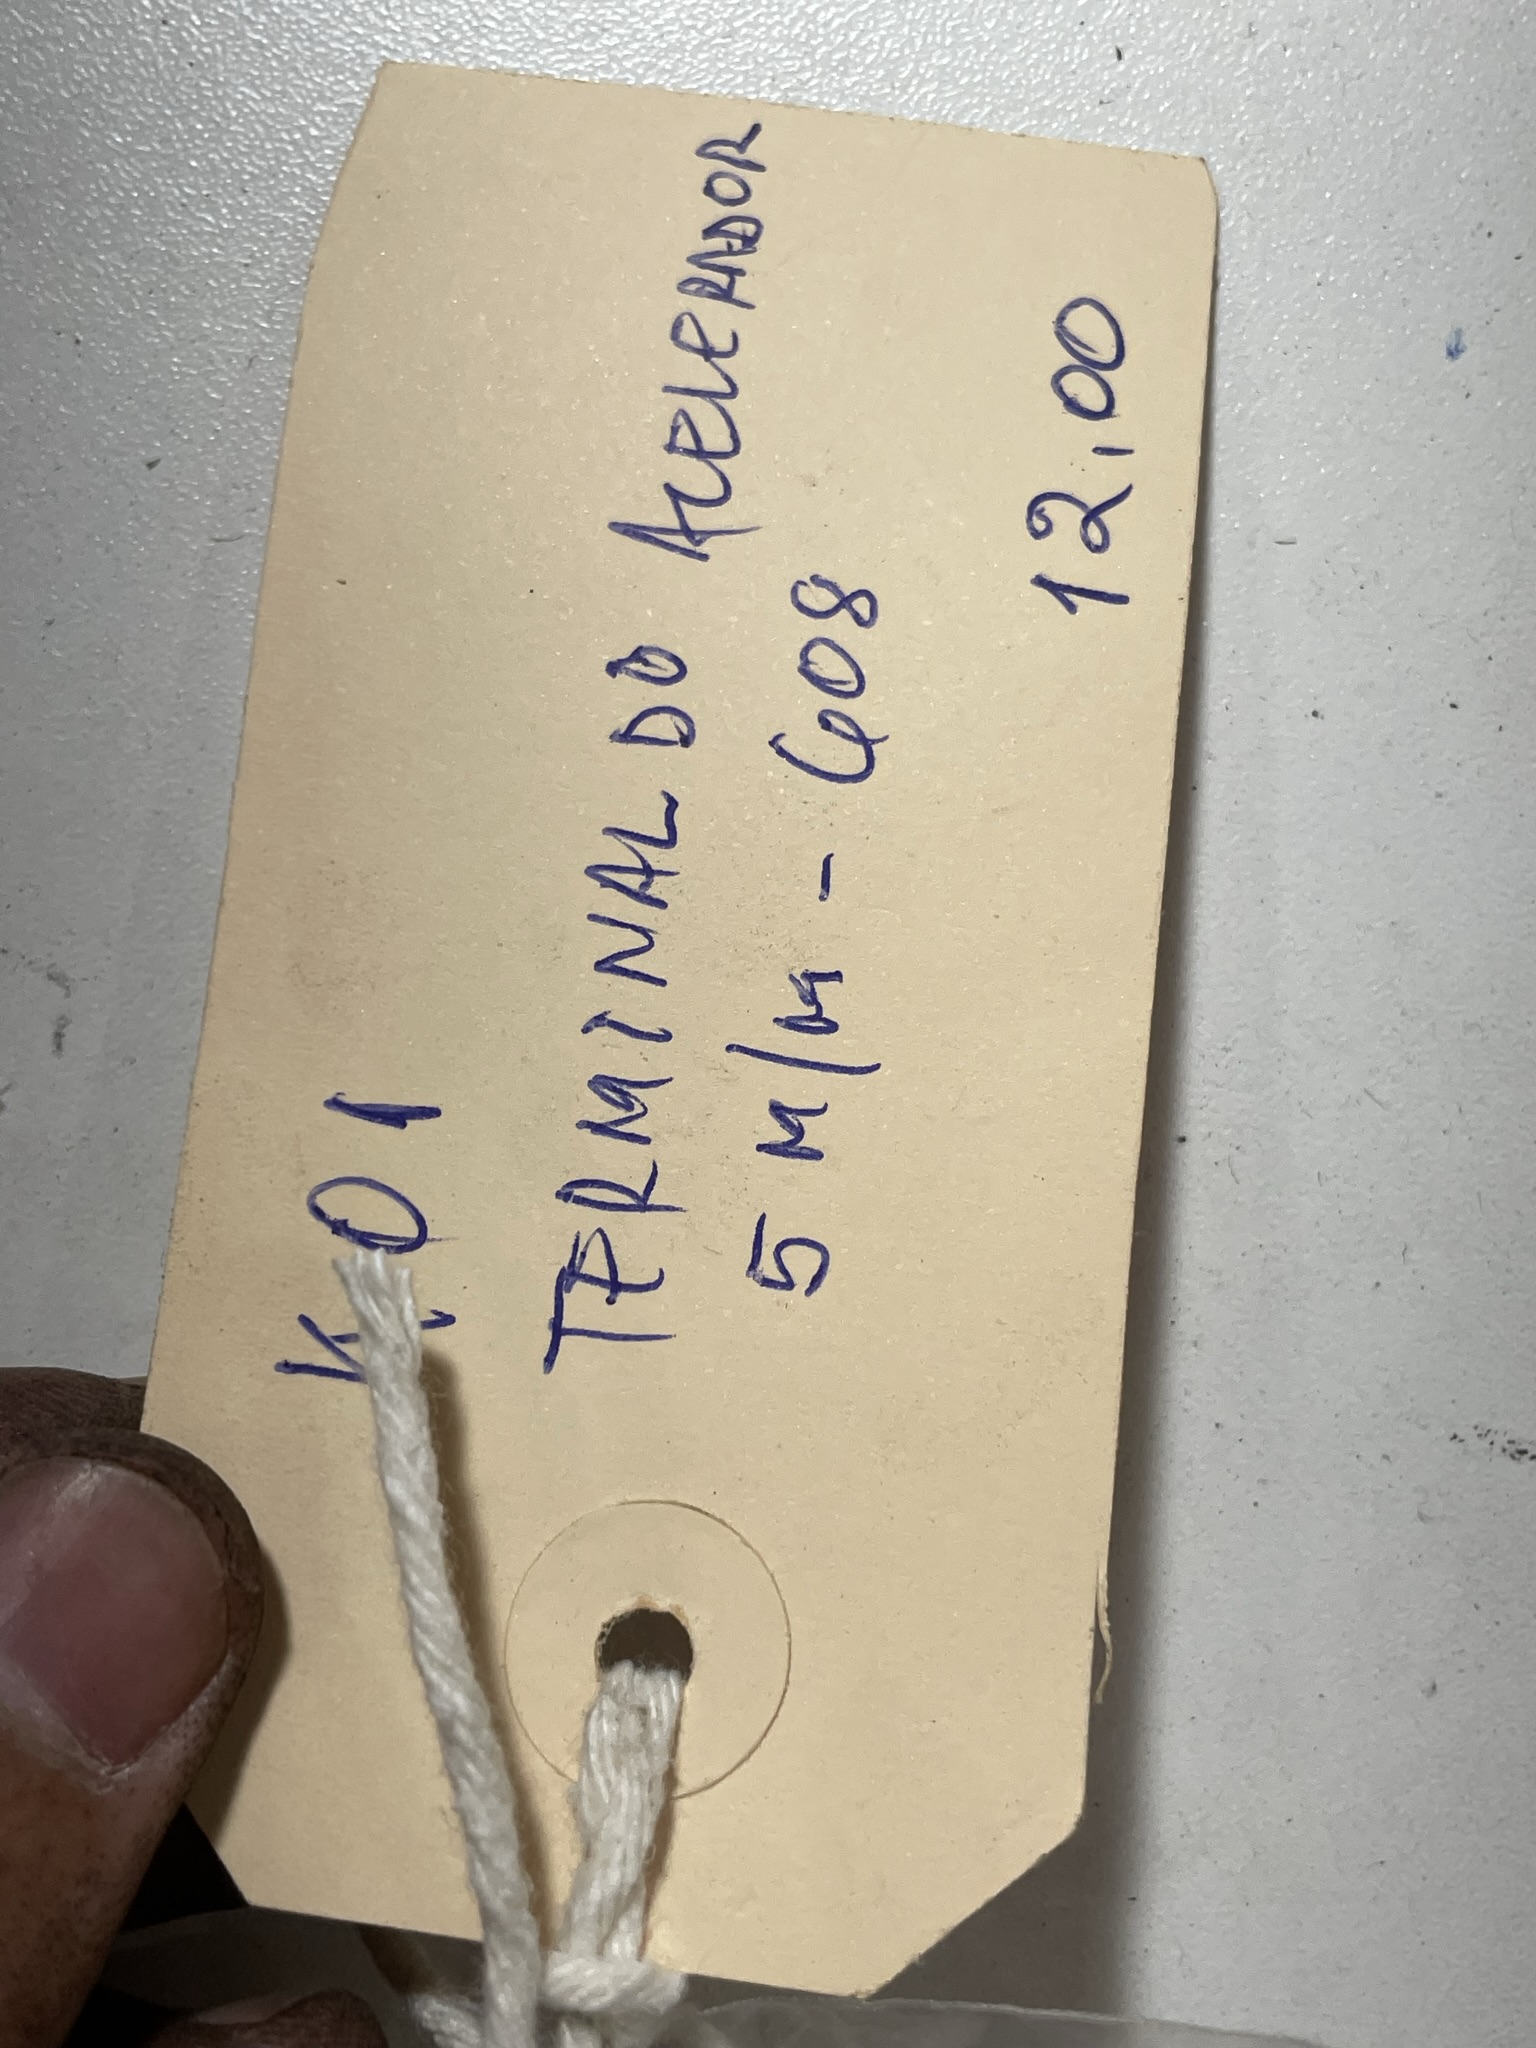 K.01
TERMINAL DO ACELERADOR
5 M/M - 608
12.00